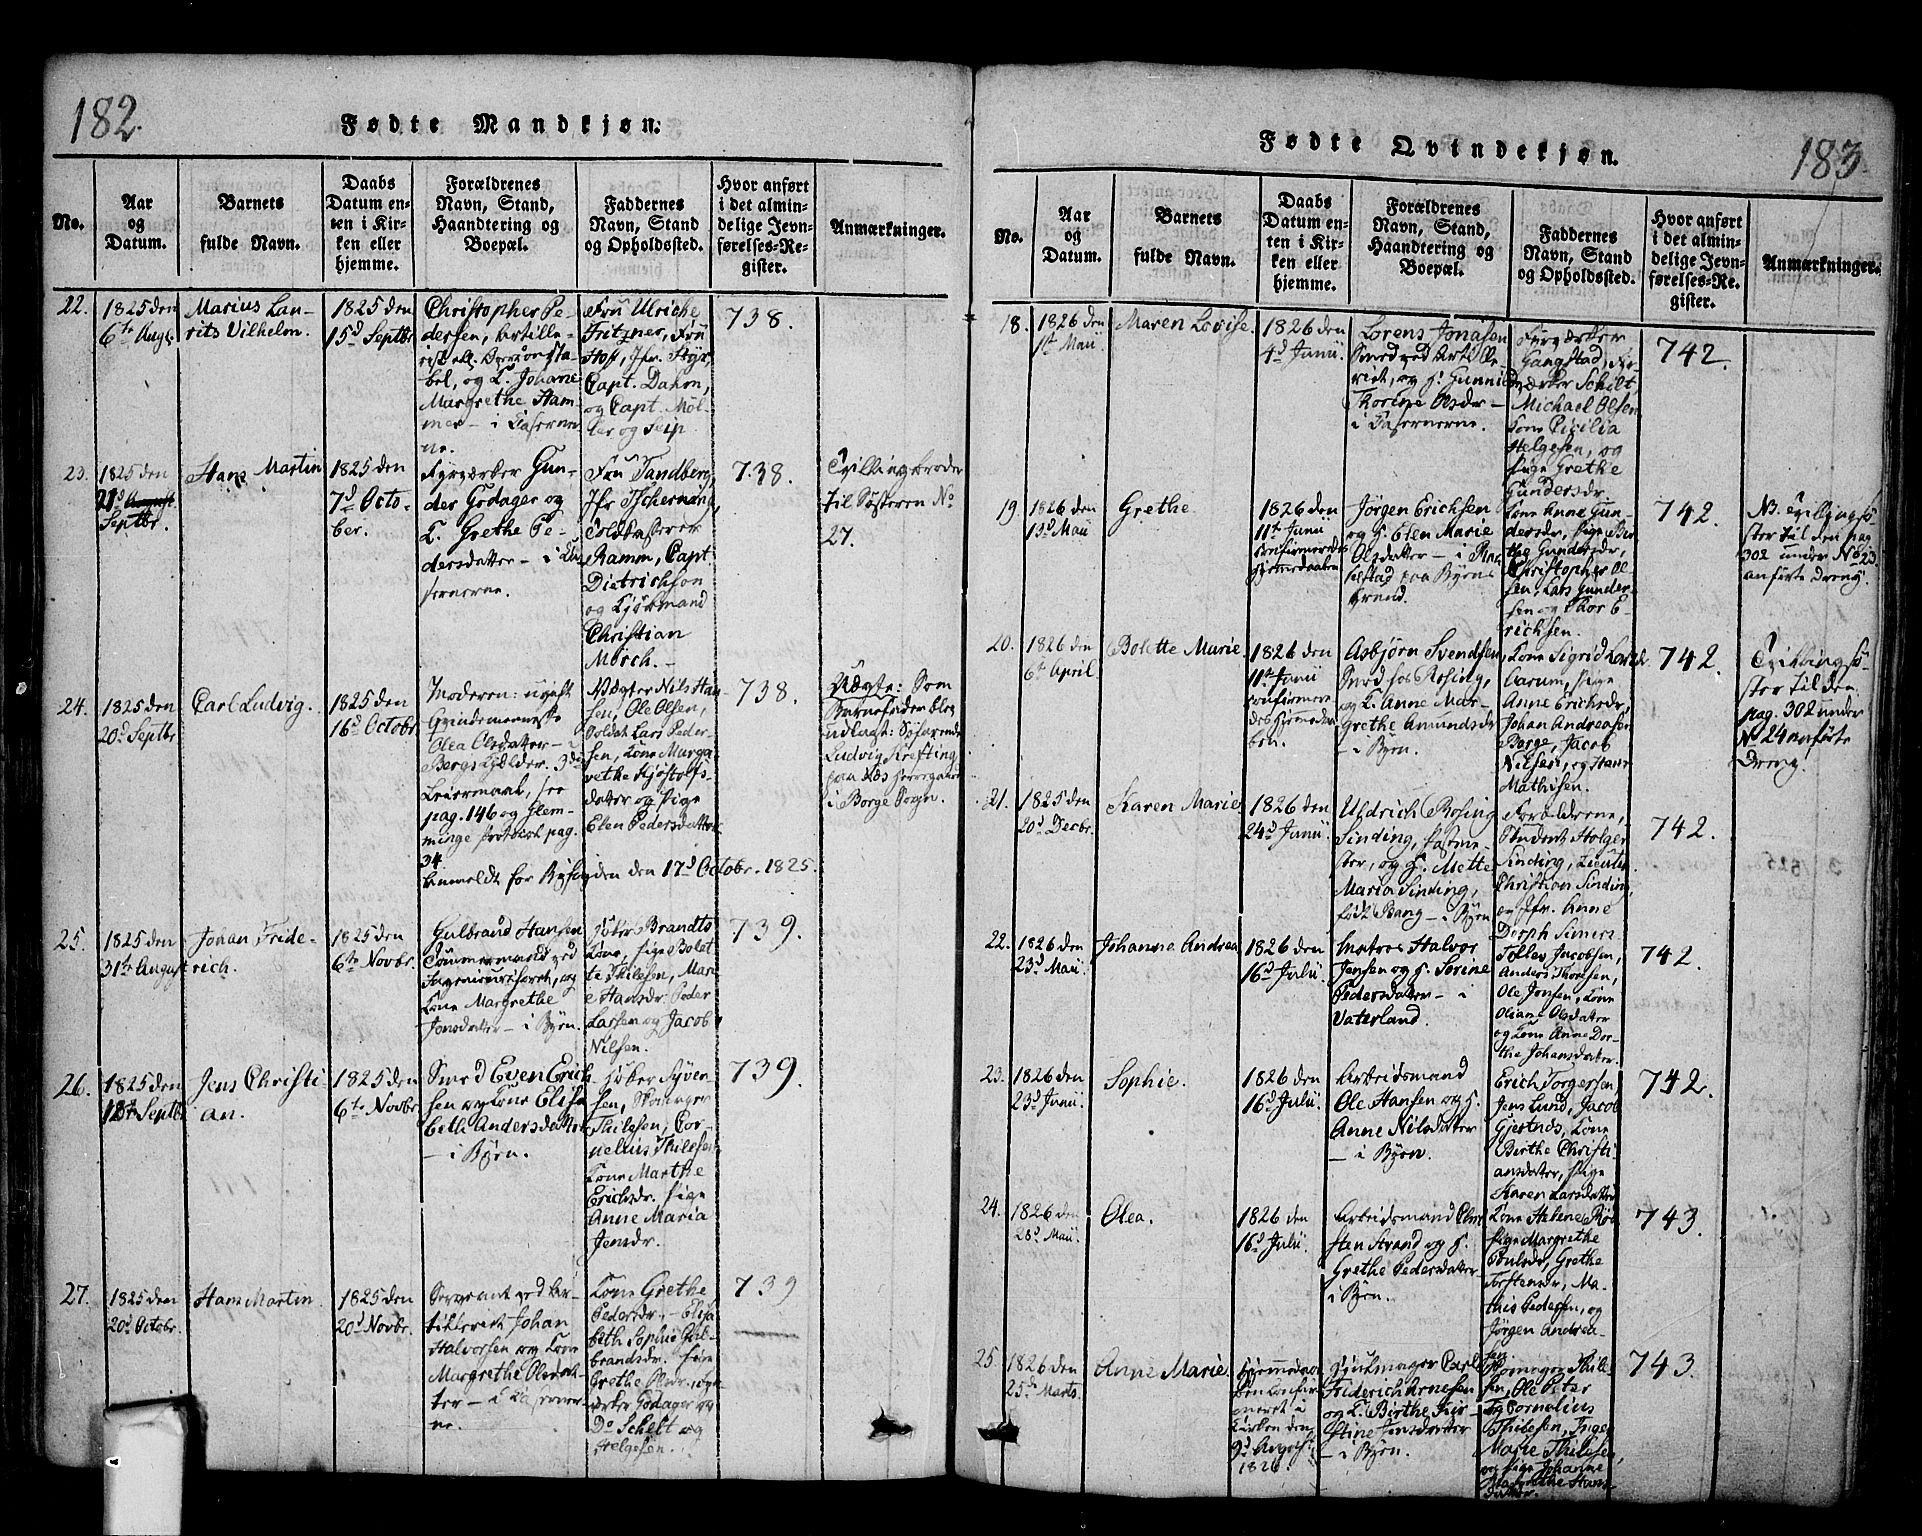 182.
Fødte Mandkjøn.
No.
Aar
og
Datum.
Barnets
fulde Navn.
Daabs
Datum en-
ten i Kir-
ken eller
hjemme.
Forældrenes
Navn, Stand,
Haandtering og
Boepæl.
Faddernes
Navn, Stand
og Opholdssted.
Hvor anført
i det almin-
delige Jevn-
førelses-Re-
gister.
Anmærkninger.
22.
1825 den
6te Augt.
Marius Lau-
rits Vilhelm.
1825 den
15d Septbr
Christopher Pe-
dersen, Artille-
bel, og K. Johanne
Margrethe Ham-
mer - i Kaserner-
ne.
Frü Ulriche
Fritzner, Frü
Capt. Dahm,
og Capt. Møl-
ler og Seip
738.
23.
1825 den
21d August
Septbr.
Hans Martin
1825 den
7d Octo-
ber.
Fyrværker Gun-
der Godager og
K. Grethe Pe-
dersdatter - i Ka-
sernerne.
Frü Tandberg,
Jfr Tschernüng,
Toldkasserer
Ramm, Capt
Dietrichson
og Kjøbmand
Christian
Mörch. -
738.
Tvillingbroder
til Søsteren No
27.
24.
1825 den
20d Septbr
Carl Ludvig.
1825 den
16d Octobr
Moderen: ugift
Qvindemenneske
Olea Olsdatter - i
Bergs Kjælder. 3die
Leiermaal, see
pag. 146 og Glem-
minge Protocol pag.
34.
Anmeldt for Byfogden den 17d Octobr. 1825.
Vægter Nils Han-
sen, Ole Olsen,
Soldat Lars Peder-
sen, Kone Marga-
rethe Kjøstolfs-
datter og Pige
Elen Pedersdatter
738.
Uægte: Som
Barnefader blev
udlagt: Søfarende
Ludvig Krefting
paa Næs Herregaard
i Borge Sogn.
25.
1825 den
31te August
Johan Fride-
rich.
1825 den
6te Novbr.
Gulbrand Hansen
Tømmermand ved
Ingenieurkorpset, og
Kone Margrethe
Jonsdatter - i Byen.
Høker Brandts
Kone, Pige Bolet-
te Thilesen, Mari-
e Hansdr. Peder
Larsen og Jacob
Nilsen.
739.
26.
1825 den
12te Septbr
Jens Christi-
an.
1825 den
6te Novbr
Smed Even Erich-
sen og Kone Elisa-
beth Andersdatter
- i Byen.
Høker Syver-
sen, Skomager
Thilesen, Cor-
nelius Thilesen
Kone Marthe
Erichsdr. Pige
Anne Maria
Jensdr.
739.
27.
1825 den
20d Octobr.
Hans Martin.
1825 den
20d Novbr.
Sergeant ved Ar-
tilleriet Johan
Halvorsen og Kone
Margrethe Olsdat-
ter - i Kaserner-
ne.
Kone Grethe
Pedersdr. - Elisa-
beth Sophie Gul-
brandsdr. Pige
Grethe Olsdr. Fyr-
værker Godager og
Do Schilt og
Helgesen.
739

183.
Fødte Qvindekjøn.
No.
Aar
og
Datum.
Barnets
fulde Navn.
Daabs
Datum en-
ten i Kir-
ken eller
hjemme.
Forældrenes
Navn, Stand,
Haandtering og
Boepæl.
Faddernes
Navn, Stand
og Opholdssted.
Hvor anført
i det almin-
delige Jevn-
førelses-Re-
gister.
Anmærkninger.
18.
1826 den
1te Maii.
Maren Lovise.
1826 den
4d Junii
Lorens Jonasen
Smed ved Artille-
riet, og H. Gunnild
Thorine Olsdr. -
i Kasernerne.
Fyrværker
Gangstad, Fyr-
værker Schilt
Michael Olsen
Kone Cicilia
Helgesen, og
Pige Grethe
Gundersdr.
742.
19.
1826 den
13d Maii
Grethe.
1826 den
11te Junii
confirmeredes
Hjemmedaaben
Jörgen Erichsen
og H. Elen Marie
Olsdatter - i
paa Byens
Grund.
Kone Anne Gun-
dersdr, Pige Bir-
the Gundersdr,
Christopher Ol-
sen, Lars Gunder-
sen og Thor E-
richsen.
742.
NB. Tvillingsö-
ster til den pag
302 under No 23
anførte Dreng.
20.
1826 den
6te April
Bolette Marie.
1826 den
11te Junii
confirmere-
des Hjemmedaa-
ben.
Asbjørn Svendsen,
Smed hos Rosing,
og K. Anne Mar-
Grethe Amundsdr
- i Byen.
Kone Sigrid
Aarum, Pige
Anne Erichsdr,
Johan Andreasen
Borge, Jacob
Nilsen, og Hans
Mathisen.
742.
Tvillingsö-
ster til den
pag. 302 under
No 24 anførte
Dreng.
21.
1825 den
20d Decbr.
Karen Marie
1826 den
24d Junii
Uldrich Rosing
Sinding, Postme-
ster, og H. Mette
Maria Sinding,
født Bang - i Byen
Forælderne,
Student Holger
Sinding, Lieuten.
Christian Sinding,
og Jfr. Anne
Dorph Simers.
742.
22.
1826 den
23d Maii.
Johanna Andrea
1826 den
16d Julii
Matros Halvor
Jensen og H. Sørine
Pedersdatter - i
Vaterland.
Tollev Jacobsen,
Anders Thoresen,
Ole Jonsen, Kone
Oliane Olsdatter
og Kone Anne Dor-
the Johansdatter.
742.
23.
1826 den
23d Junii
Sophie.
1826 den
16d Julii.
Arbeidsmand
Ole Hansen og H.
Anne Nilsdatter
- i Byen.
Erich Torgersen
Jens Lund, Jacob
Gjestnæs, Kone
Birthe Christi-
ansdatter, Pige
Karen Larsdatter
742.
24.
1826 den
28d Maii.
Olea.
1826 den
16d Julii.
Arbeidsmand Chri-
sten Strand og H.
Grethe Pedersdatter
i Byen.
Kone Helene
Pige Margrethe
Poulsdr, Grethe
Torstensdr, Ma-
this Pedersen, og
Jörgen Andrea-
sen.
743.
25.
1826 den
25de Marts.
Anne Marie.
Hjemmedaa-
ben confir-
meret i
Kirken den
9d August
1826.
Carl
Friderich Arnesen
og K. Birthe Kir-
stine Jensdatter
- i Byen.
Skomager Thile-
sen, Ole Peter
og Cornelius
Thilesen, Inger
Marie Thilesen,
og Pige Johanne
Margrethe Hans-
datter.
743.